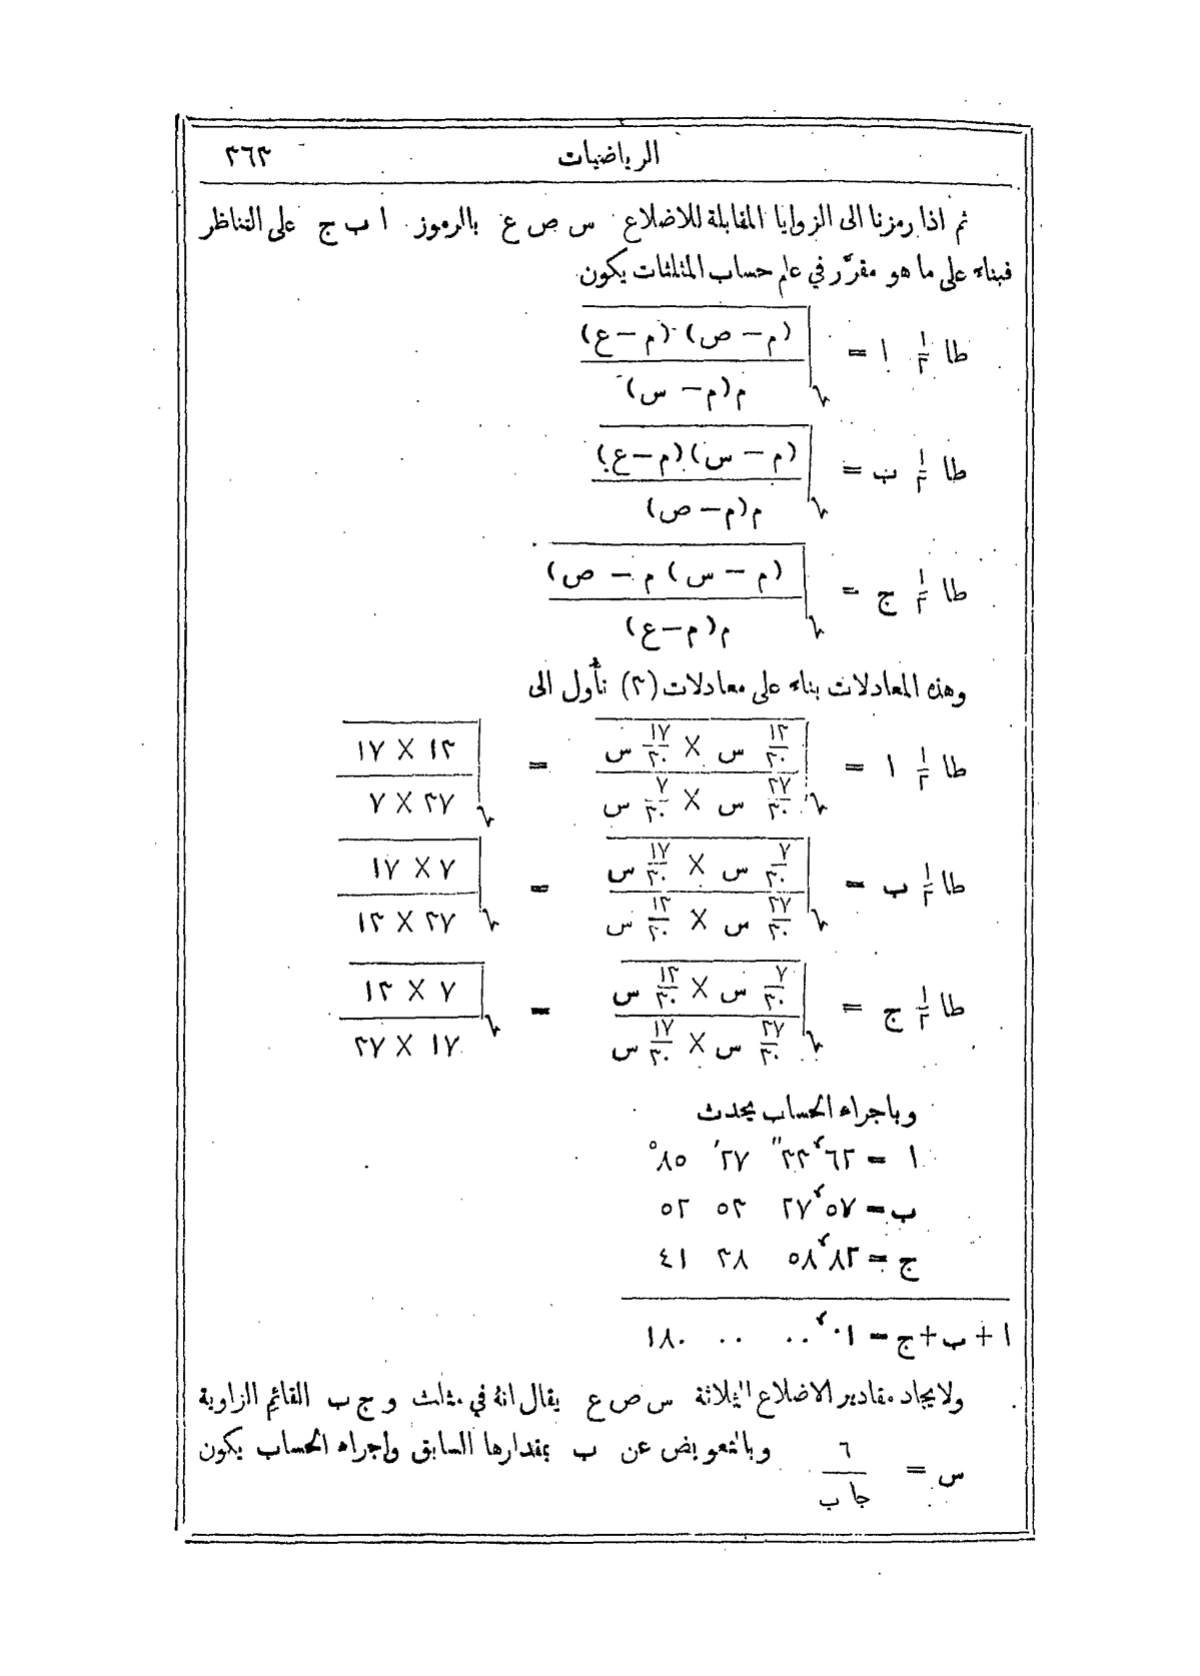 الرياضيات ٣٦٣
ثم اذا رمزنا الى الزوايا المقابلة للاضلاع س ص ع بالرموز ا ب ج على التناظر
فبناء على ما هو مقرّر في علم حساب المثلثات يكون
طا ١/٢ ا = √ (م − ص) (م − ع) / م (م − س)
طا ١/٢ ب = √ (م − س) (م − ع) / م (م − ص)
طا ١/٢ ج = √ (م − س) م − ص) / م (م − ع)
وهذه المعادلات بناء على معادلات (٣) تأول الى
طا ١/٢ ا = √ ١٣/٣٠ س × ١٧/٣٠ س / ٣٧/٣٠ س × ٧/٣٠ س = √ ١٣ × ١٧ / ٣٧ × ٧
طا ١/٢ ب = √ ٧/٣٠ س × ١٧/٣٠ س / ٣٧/٣٠ س × ١٣/٣٠ س = √ ٧ × ١٧ / ٣٧ × ١٣
طا ١/٢ ج = √ ٧/٣٠ س × ١٣/٣٠ س / ٣٧/٣٠ س × ١٧/٣٠ س = √ ٧ × ١٣ / ١٧ × ٣٧
وباجراء الحساب يحدث
ا = ٦٢ر٣٣″ ٢٧′ ٨٥°
ب = ٥٧ر٢٧ ٥٣ ٥٢
ج = ٨٢ر٥٨ ٣٨ ٤١
ا + ب + ج = ٠١ر٠٠ ٠٠ ١٨٠
ولايجاد مقادير الاضلاع الثلاثة س ص ع يقال انهُ في مثلث و ج ب القائم الزاوية
س = ٦ / جا ب وبالتعويض عن ب بمقدارها السابق واجراء الحساب يكون